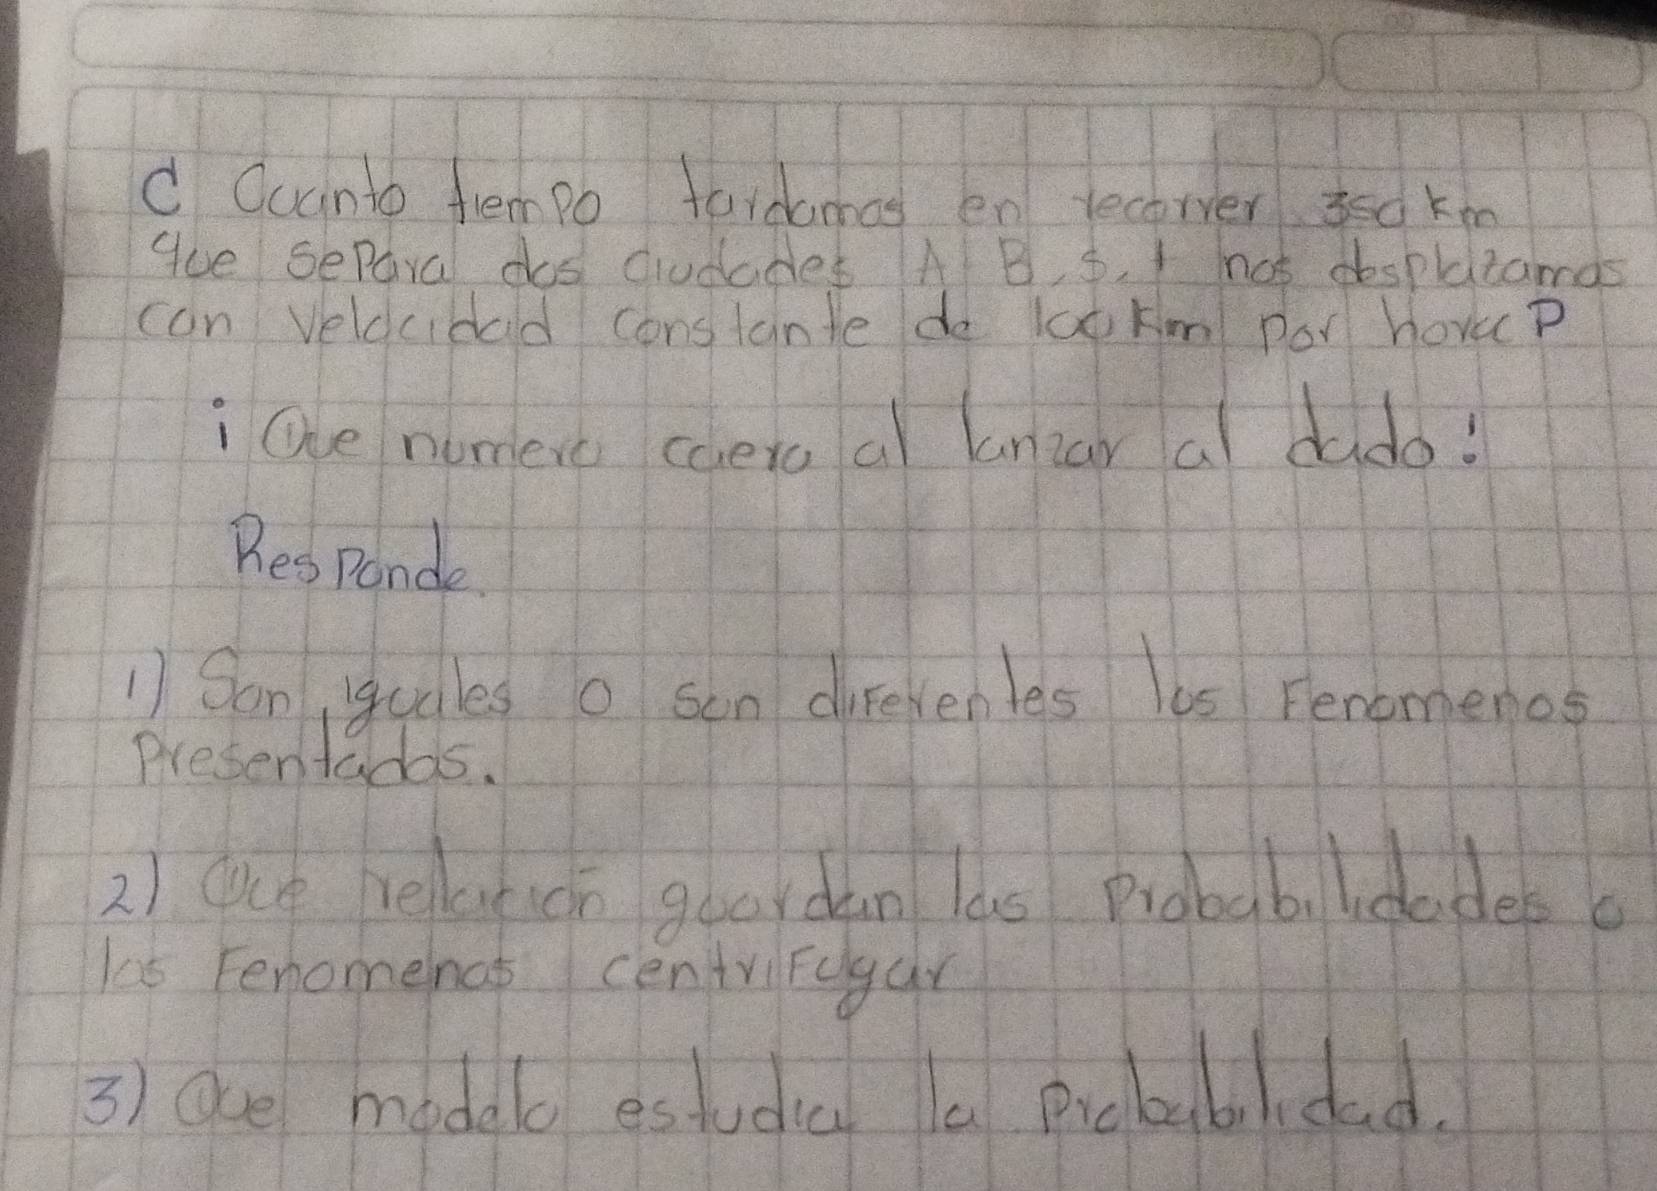 ¿ Cuanto tiempo tardamos en recorrer 350 km
que separa dos ciudades A B, s, i nos desplazamos
con velocidad constante de 100 Km por hora?
¡ Que numero caera al lanzar al dado!
Responde.
1) Son, iguales o son diferentes los Fenomenos
presentados.
2) Que relacion guardan las probabilidades o
los Fenomenos centrifugar
3) Que modelo estudia la probabilidad.